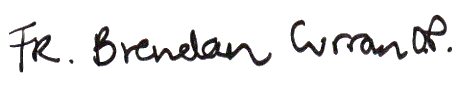 Fr. Brendan Curran O.P.